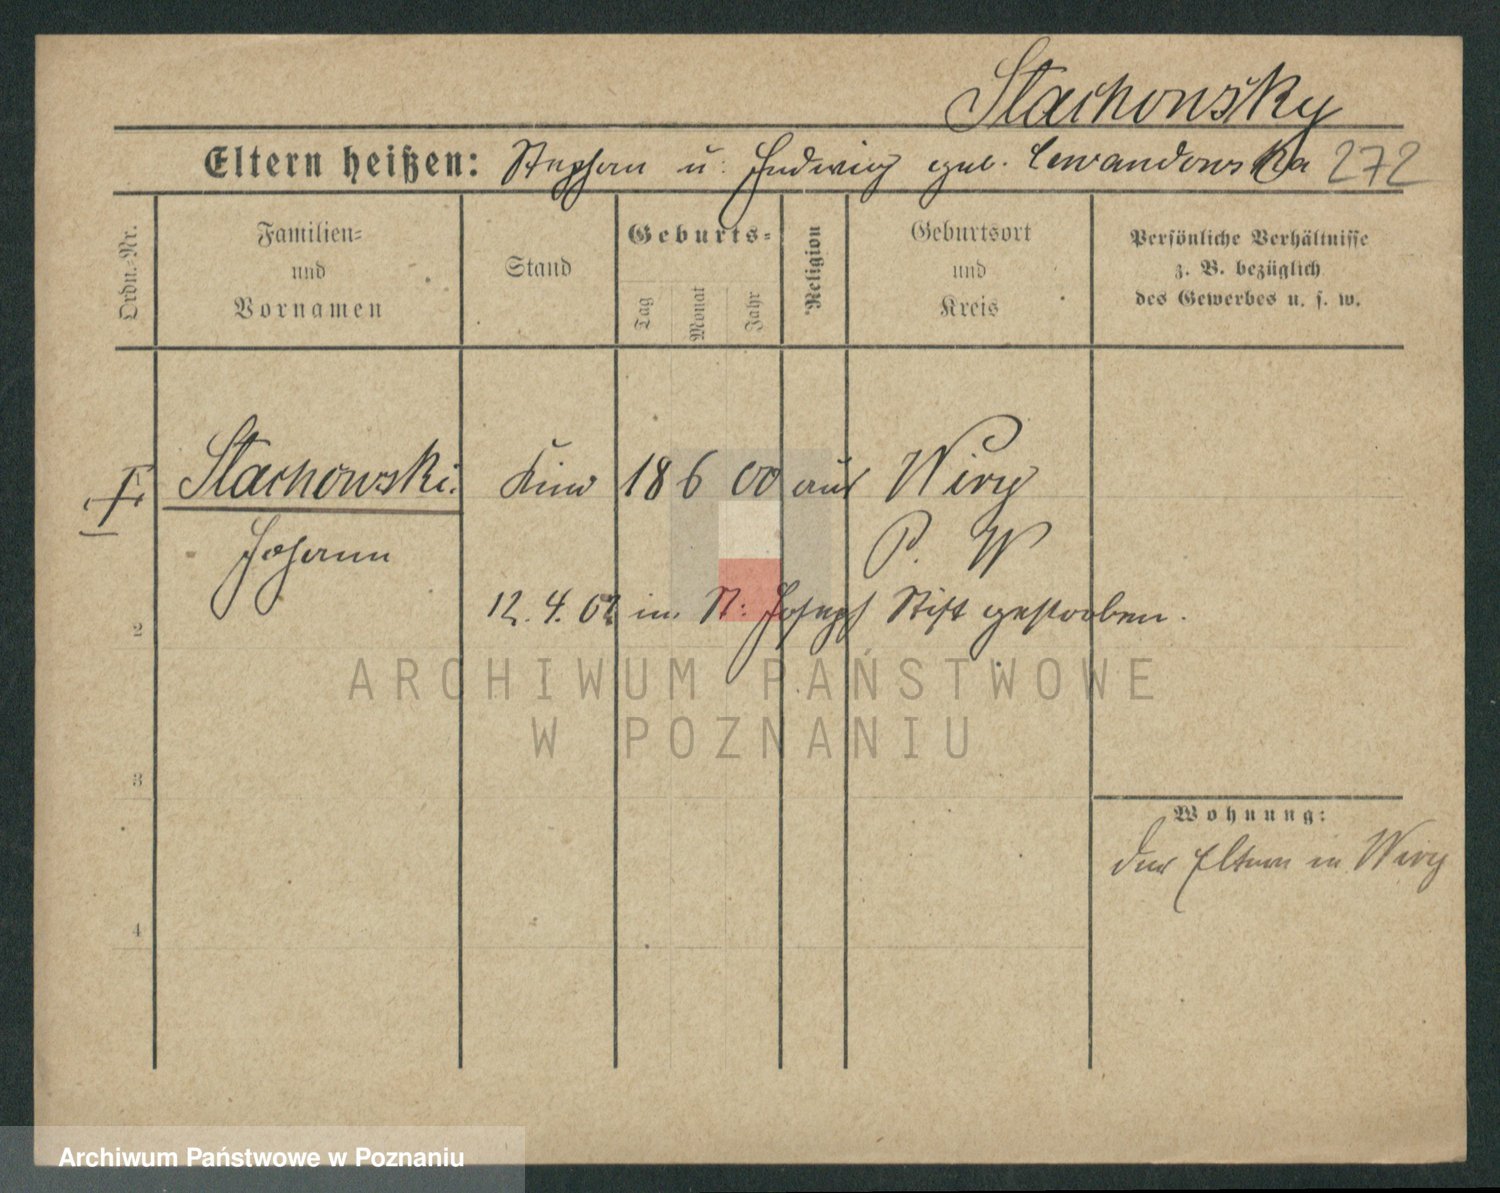 Stachowsky
Eltern heißen: Stephan u. Hedwig geb. Lewandowska 272
Ordn.-Nr.
Familien-
und
Vornamen
Stand
Geburts-
Tag
Monat
Jahr
Religion
Geburtsort
und
Kreis
Persönliche Verhältnisse
z. B. bezüglich
des Gewerbes u. s. w.
Stachowski Kind 18 6 00 Wiry
Johann P. W
12. 4. 02 im St: Joseph Stift gestorben.
2
3
4
Wohnung:
der Eltern in Wiry
ARCHIWUM PAŃSTWOWE
W POZNANIU
Archiwum Państwowe w Poznaniu